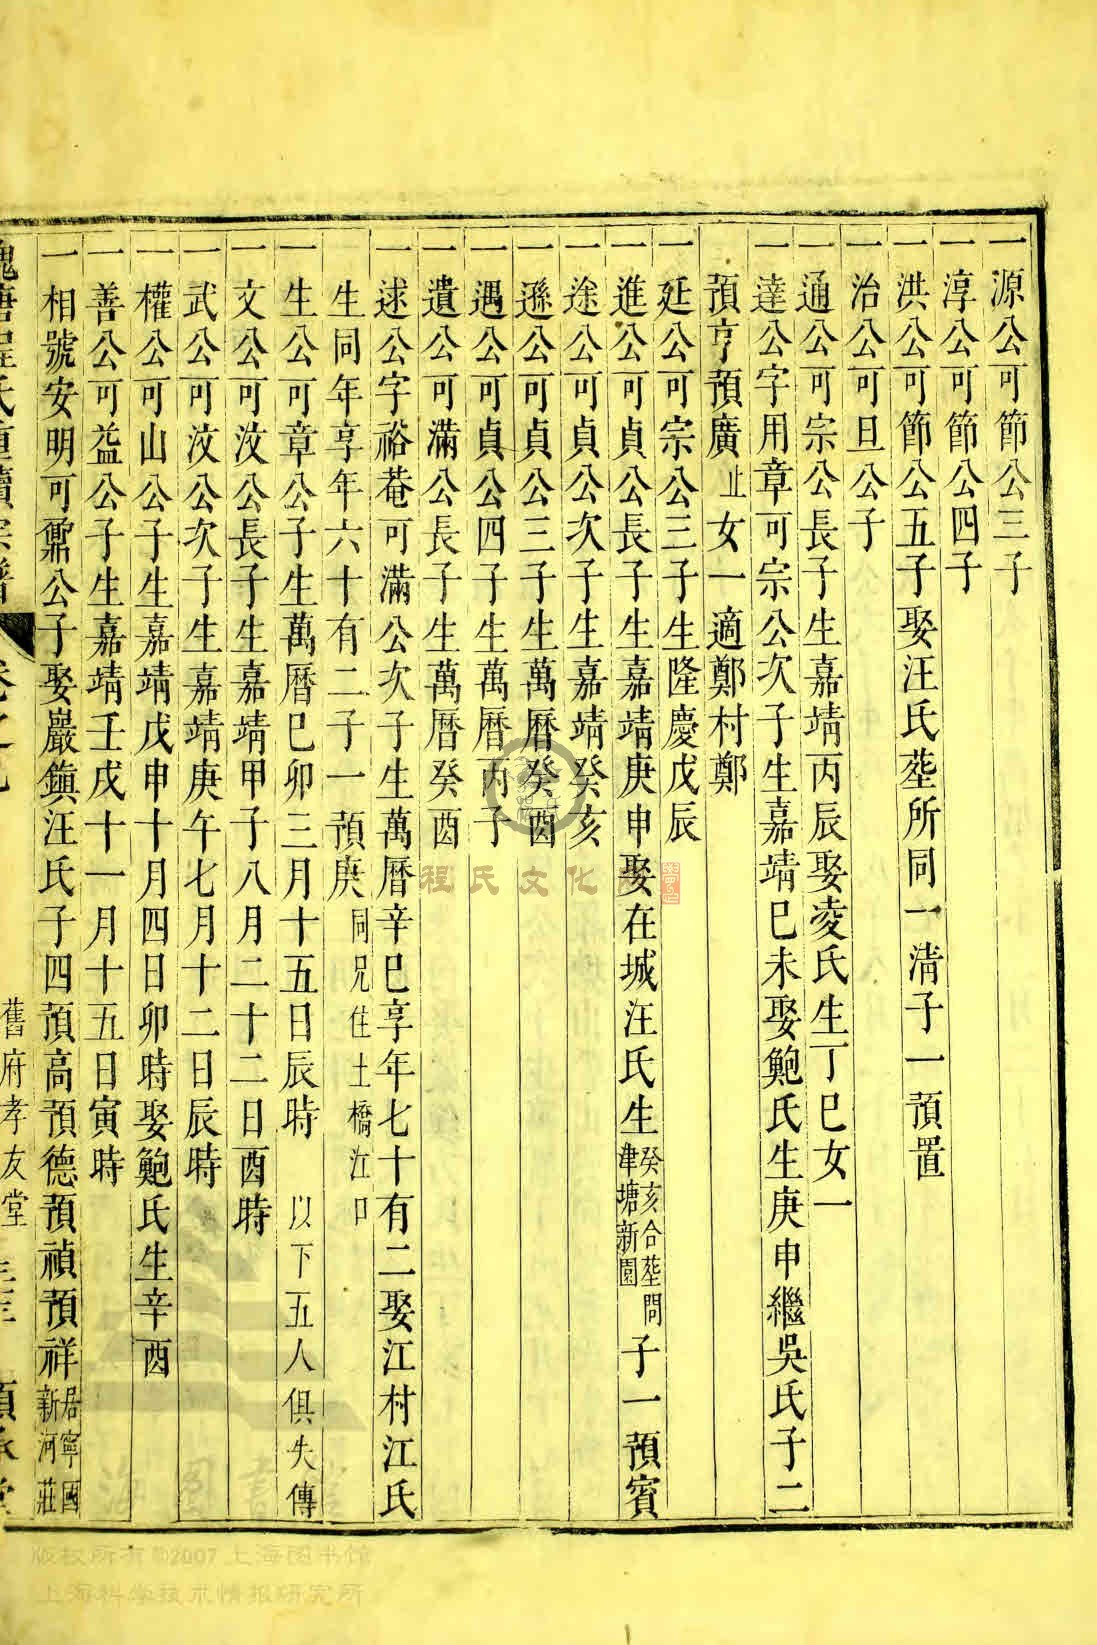 一源公可節公三子
一淳公可節公四子
一洪公可節公五子娶汪氏塟所同一清子一預置
一治公可旦公子
一通公可宗公長子生嘉靖丙辰娶凌氏生丁巳女一
一達公字用章可宗公次子生嘉靖巳未娶鮑氏生庚申繼吳氏子二
預亨預廣止女一適鄭村鄭
一延公可宗公三子生隆慶戊辰
一進公可貞公長子生嘉靖庚申娶在城汪氏生癸亥合塟問津塘新園子一預賓
一途公可貞公次子生嘉靖癸亥
一遜公可貞公三子生萬曆癸酉
一遇公可貞公四子生萬曆丙子
一遺公可滿公長子生萬曆癸酉
一逑公字裕菴可滿公次子生萬曆辛巳享年七十有二娶江村江氏
生同年享年六十有二子一預庚同兄住土橋江口
一生公可章公子生萬曆巳卯三月十五日辰時 以下五人俱失傳
一文公可汶公長子生嘉靖甲子八月二十二日酉時
一武公可汶公次子生嘉靖庚午七月十二日辰時
一權公可山公子生嘉靖戊申十月四日卯時娶鮑氏生辛酉
一善公可益公子生嘉靖壬戌十一月十五日寅時
一相號安明可鼏公子娶巖鎮汪氏子四預高預德預禎預祥居寧國新河莊
舊府孝友堂
程氏文化
版权所有©2007上海图书馆
上海科学技术情报研究所